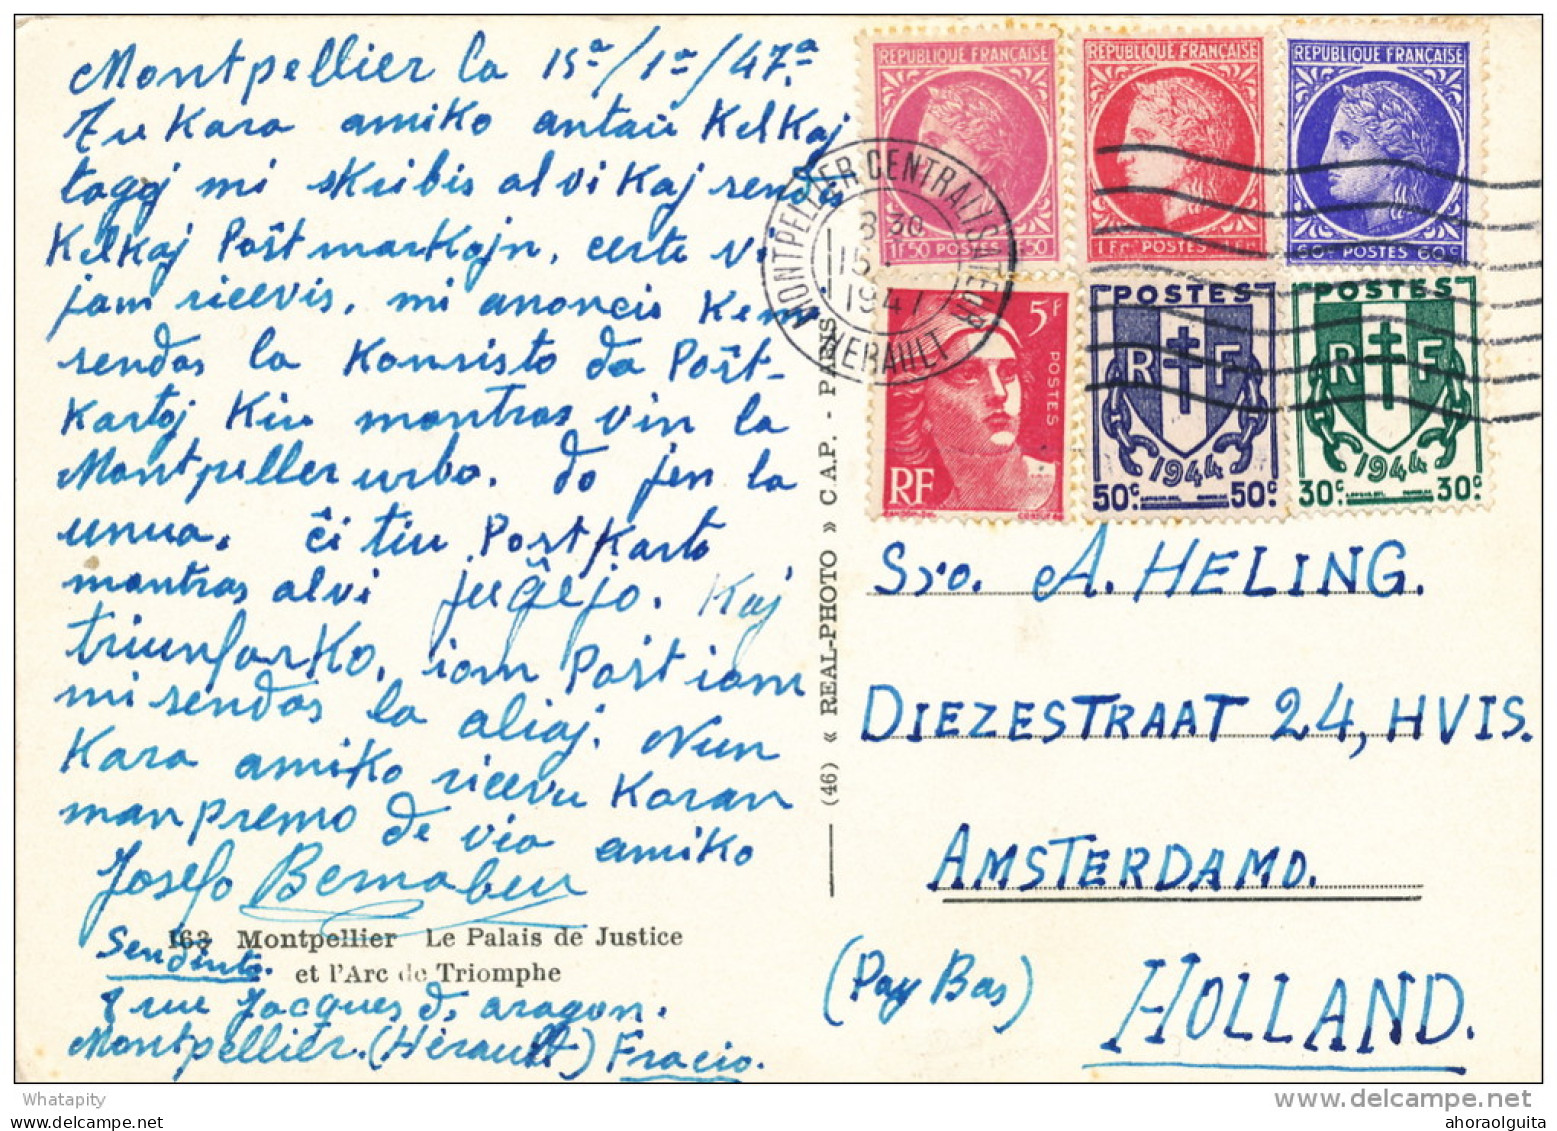 Montpellier la 15ª/1ª/47.ª
Tre Kara amiko antaŭ Kelkaj
tagoj mi skribis al vi Kaj sendis
Kelkaj Poŝtmarkojn, certe vi
jam ricevis, mi anoncis Ke mi
sendas la Konsisto da Poŝt-
Kartoj Kiu montras vin la
Montpeller urbo. do jen la
unua. ĉi tiu PostKarto
montras al vi juĝejo. Kaj
triunfarKo, iom Post iom
mi sendos la aliaj. Nun
Kara amiko ricevu Koran
manpremo de via amiko
Josefo Bernabeu
163 Montpellier Le Palais de Justice
et l'Arc de Triomphe
Sendinto.
8 rue Jacques d, aragon.
Montpellier. (Hérault) Fracio.
(46) « REAL-PHOTO » C.A.P. - PARIS
RÉPUBLIQUE FRANÇAISE
1F.50 POSTES 1F.50
RÉPUBLIQUE FRANÇAISE
1 Fr. POSTES 1 Fr.
RÉPUBLIQUE FRANÇAISE
60c POSTES 60c
MONTPELLIER CENTRALISATEUR
1947
HERAULT
5F
POSTES
RF
POSTES
R F
1944
50c. 50c
POSTES
R F
1944
30c 30c
Sro. A. HELING.
DIEZESTRAAT 24, HVIS.
AMSTERDAMO.
(Pay Bas) HOLLAND.
Whatapity
delcampe.net
ahoraolguita